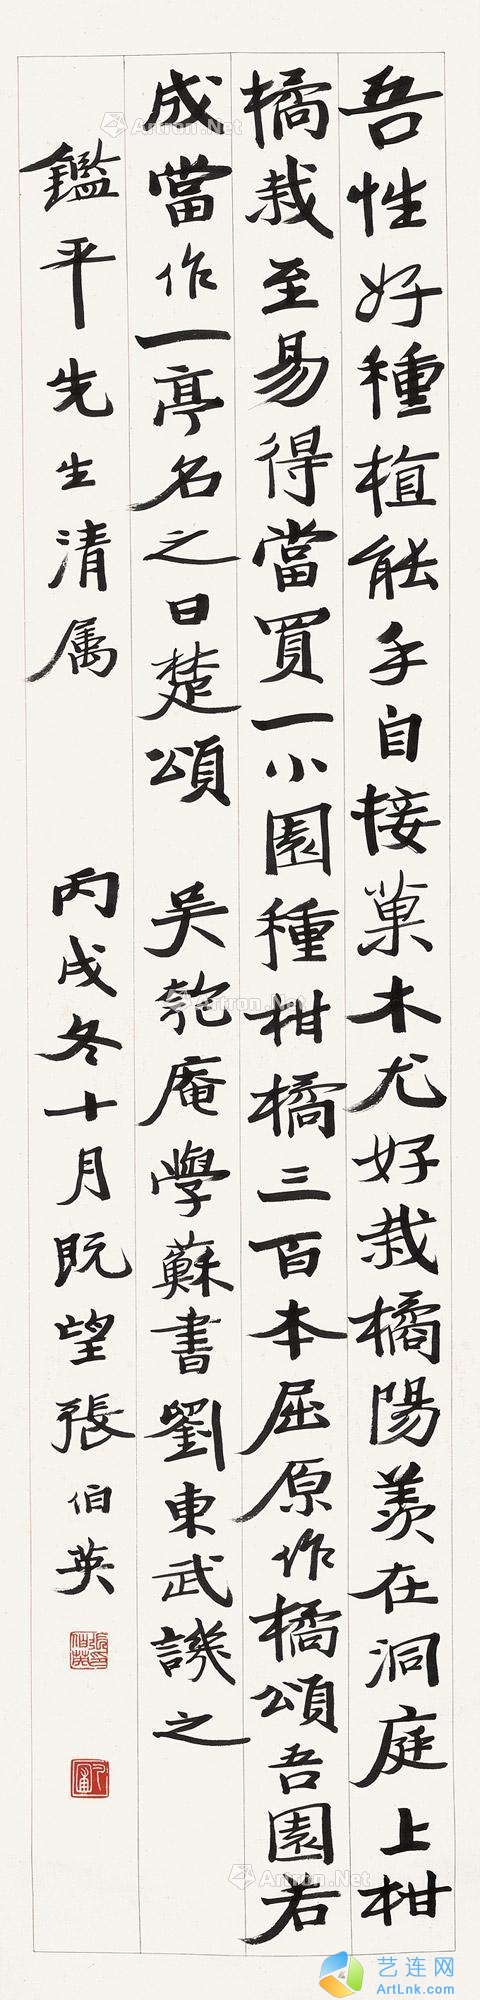 吾性好種植能手自接菓木尤好栽橘陽羨在洞庭上柑
橘栽至易得當買一小園種柑橘三百本屈原作橘頌吾園若
成當作一亭名之曰楚頌 吴匏庵學蘇書劉東武譏之
鑑平先生清属 丙戌冬十月既望張伯英
張伯英印
Artron.Net
Artron.Net
Artron.Net
Artron.Net
Artron.Net
Artron.Net
艺连网
ArtLnk.com